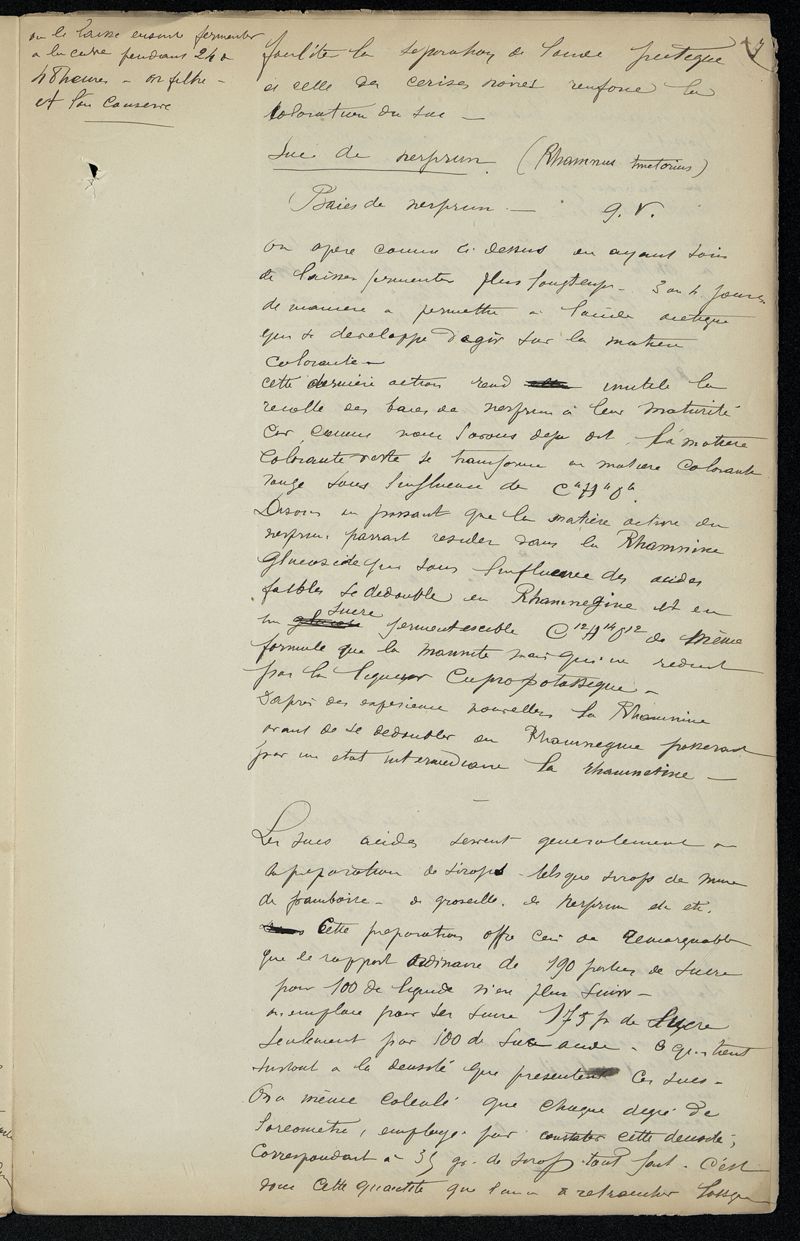 on le laisse ensuite fermenter
a la cave pendant 24 a
48 heures - on filtre -
et l'on conserve
7
facilite la separation de l'acide pectique
et celle des cerises noires renforce la
coloration du suc -
Suc de nerprun (Rhamnus tinctorius)
Baies de nerprun - q. V.
on opere comme ci dessus en ayant soin
de laisser fermenter plus longtemps - 3 ou 4 jours
de maniere a permettre a l'acide acetique
qui se developpe d'agir sur la matiere
colorante -
cette dernière action rend inutile la
recolte des baies de nerprun à leur maturité
car comme nous l'avons deja dit la matiere
colorante verte se transforme en matiere colorante
rouge sous l'influence de C4H4O4.
Disons en passant que la matière active du
nerprun parrait resider dans la Rhamnine
Glucoside qui sous l'influence des acides
faibles se dedouble en Rhamnegine et en
un sucre fermentescible C12H14O12 de même
formule que la mannite mais qui ne reduit
pas la liqueur Cupropotassique -
D'après des experiences nouvelles la Rhamnine
avant de se dedoubler en Rhamnegine passerait
par un etat intermediaire la rhamnetine -
Les sucs acides servent generalement a
la preparation de sirops tels que sirops de mure
de framboise - de groseille, de Nerprun etc etc.
Cette preparation offre ceci de remarquable
que le rapport ordinaire de 190 parties de sucre
pour 100 de liquide n'est plus suivi -
on emploie pour ces sucs 175 p de sucre
seulement par 100 de suc acide - ce qui tient
surtout a la densité que presentent ces sucs -
On a même calculé que chaque degré de
l'areometre, employé pour constater cette densité,
correspondait a 35 gr. de sirop tout fait - C'est
donc cette quantité que l'on a a retrancher lorsque